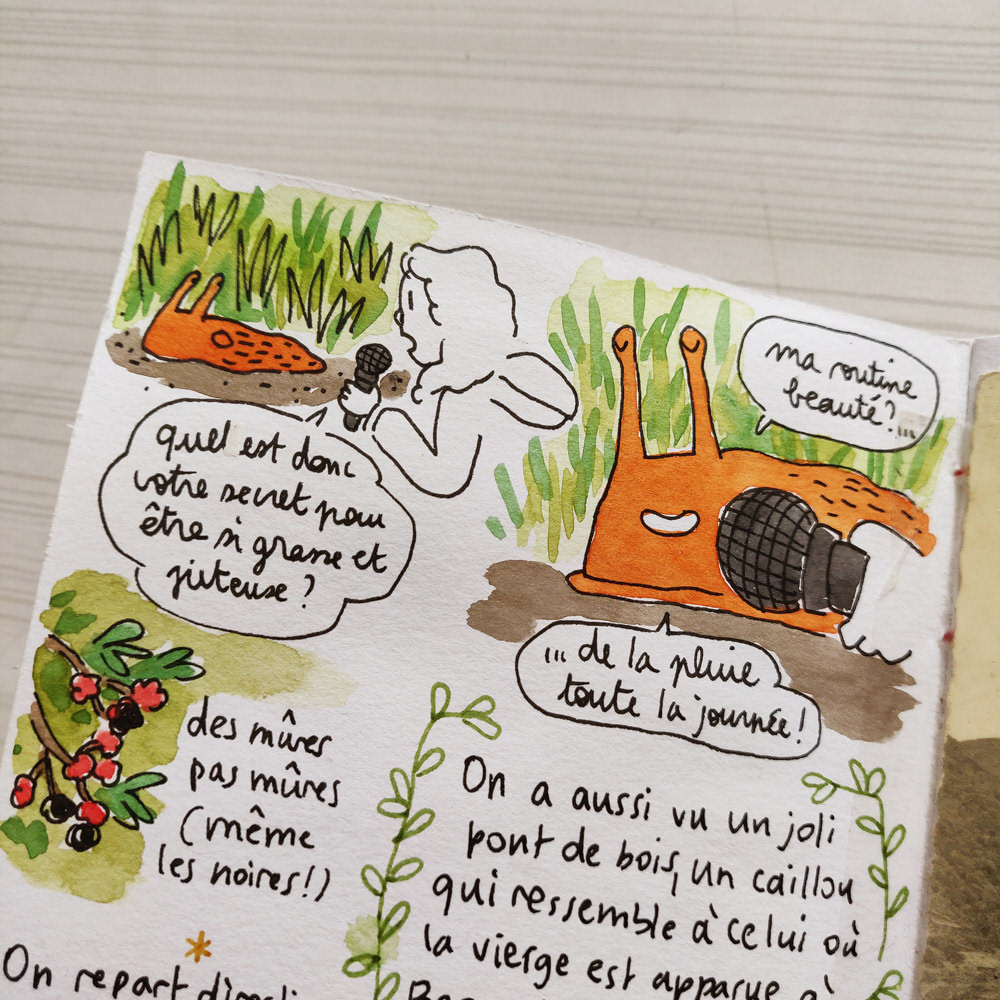 quel est donc
votre secret pour
être si grasse et
juteuse ?
ma routine
beauté?...
... de la pluie
toute la journée!
des mûres
pas mûres
(même
les noires!)
On a aussi vu un joli
pont de bois, un caillou
qui ressemble à celui où
la vierge est apparue à
On repart